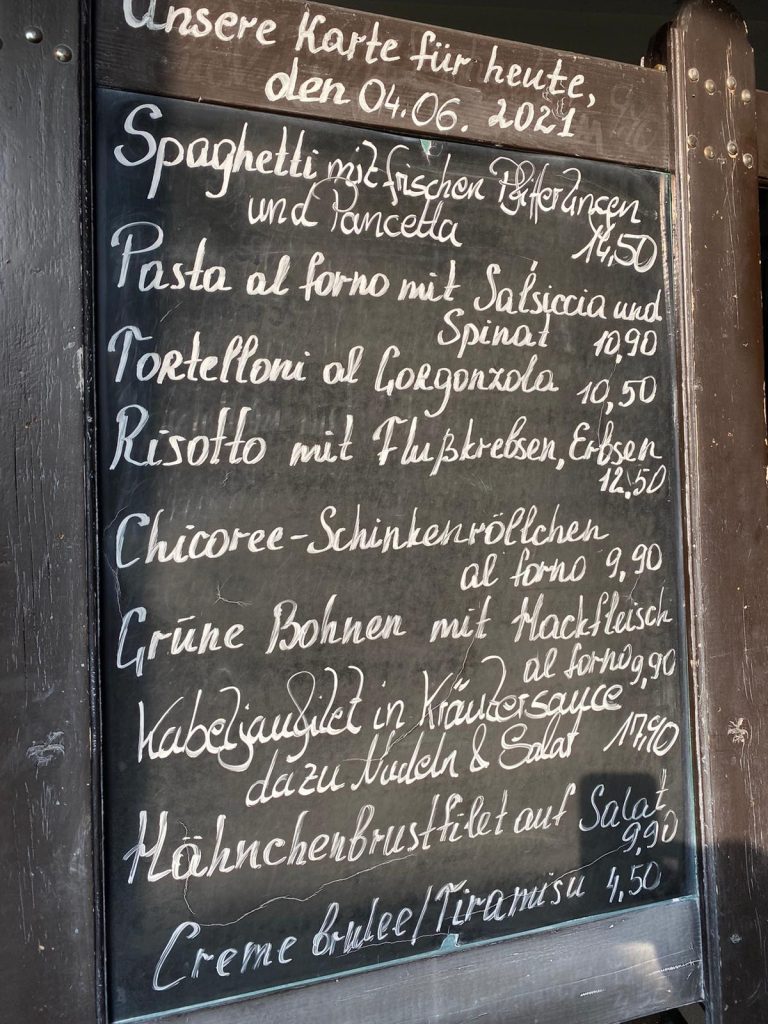 Unsere Karte für heute,
den 04.06. 2021
Spaghetti mit frischen Pfifferlingen
und Pancetta 14,50
Pasta al forno mit Salsiccia und
Spinat 10,90
Tortelloni al Gorgonzola 10,50
Risotto mit Flußkrebsen, Erbsen
12,50
Chicoree-Schinkenröllchen
al forno 9,90
Grüne Bohnen mit Hackfleisch
al forno 9,90
Kabeljaufilet in Kräutersauce
dazu Nudeln & Salat 17,90
Hähnchenbrustfilet auf Salat
9,90
Creme brulee/Tiramisu 4,50